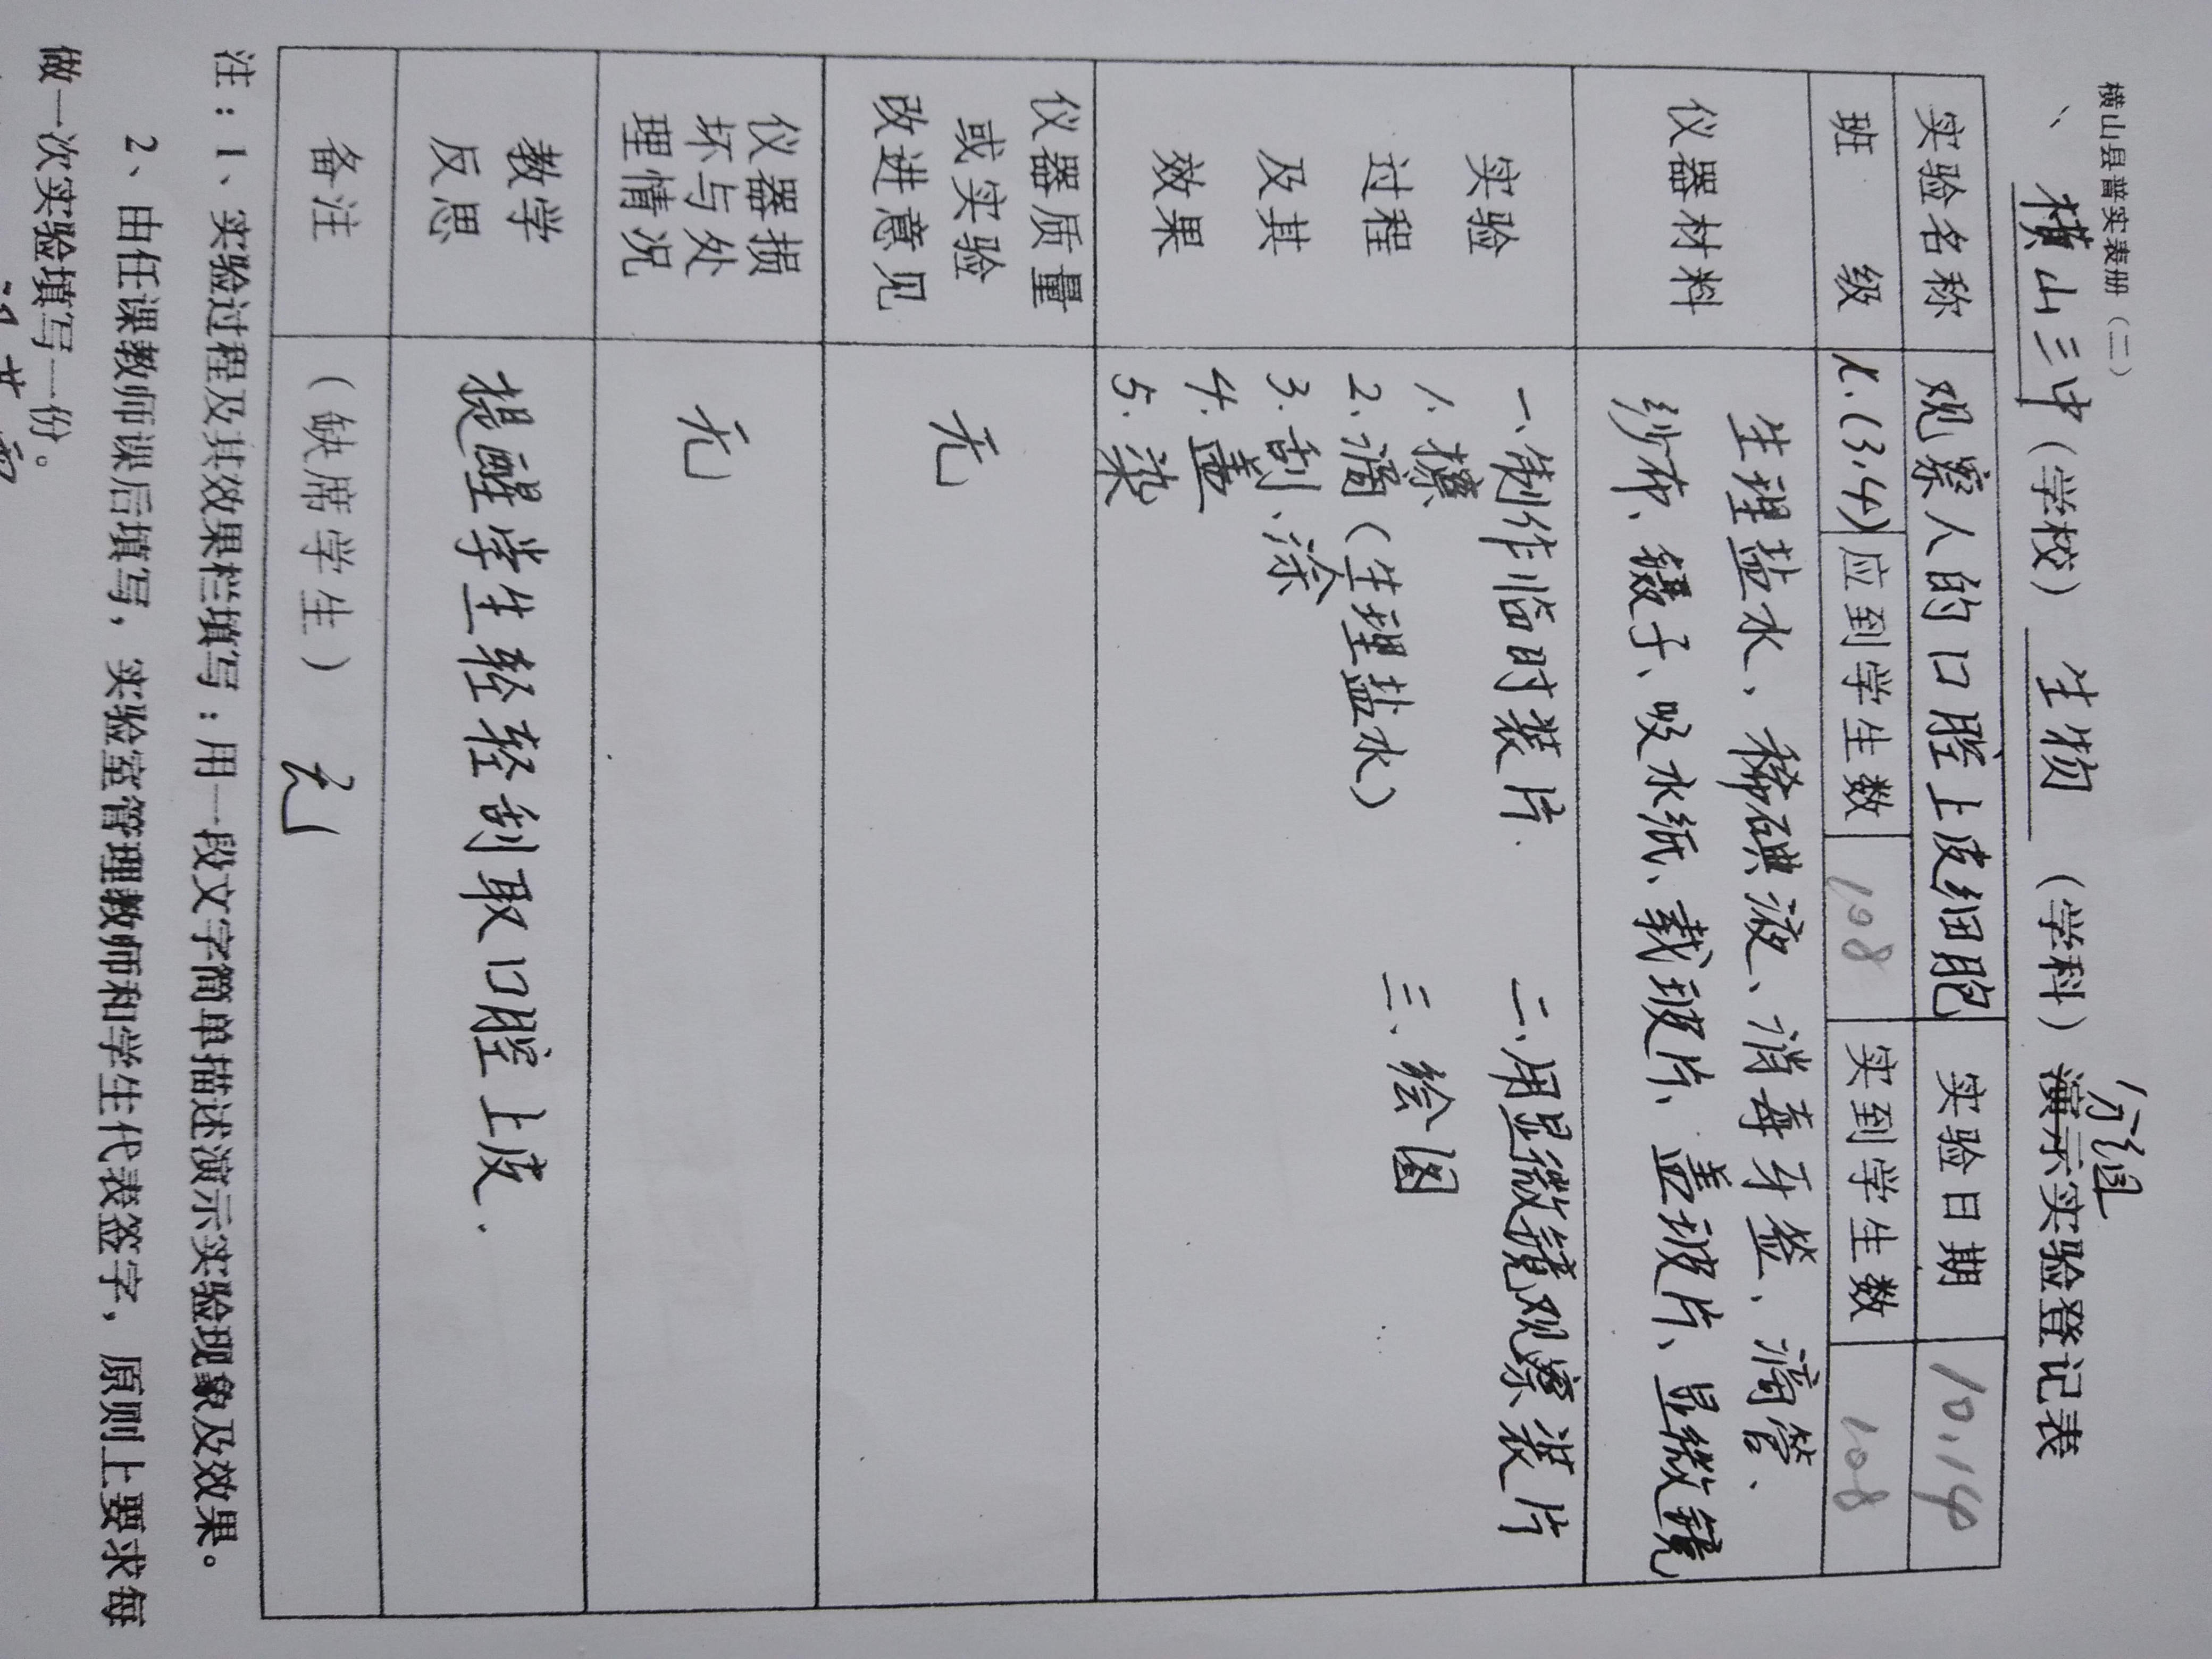 横山县普实表册（二）
、横山三中（学校）生物（学科）分组演示实验登记表
实验名称 观察人的口腔上皮细胞 实验日期 10.14
班级 (3.4) 应到学生数 108 实到学生数 108
仪器材料 生理盐水、稀碘液、消毒牙签、滴管、
纱布、镊子、吸水纸、载玻片、盖玻片、显微镜
实验
过程
及其
效果
一、制作临时装片.
1. 擦
2. 滴（生理盐水）
3. 刮、涂
4. 盖
5. 染
二、用显微镜观察装片
三、绘图
仪器质量
或实验
改进意见
无
仪器损
坏与处
理情况
无
教学
反思
提醒学生轻轻刮取口腔上皮.
备注 （缺席学生） 无
注：1、实验过程及其效果栏填写：用一段文字简单描述演示实验现象及效果。
2、由任课教师课后填写，实验室管理教师和学生代表签字，原则上要求每
做一次实验填写一份。